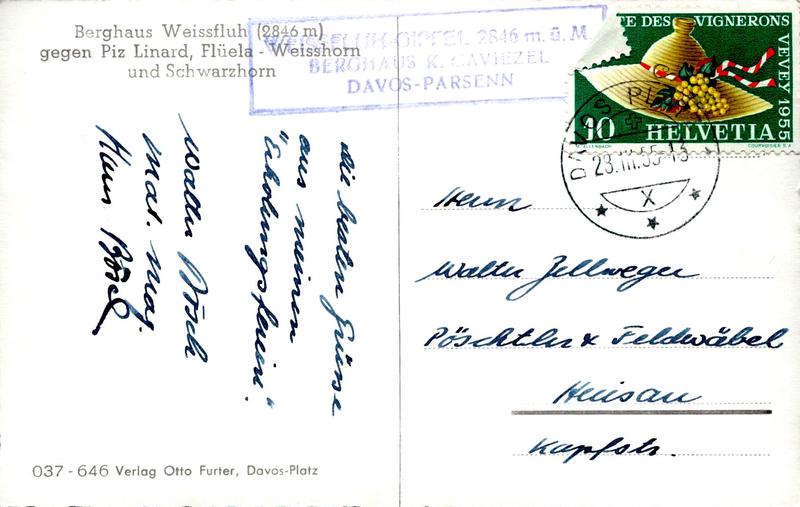 Berghaus Weissfluh (2846 m)
gegen Piz Linard, Flüela - Weisshorn
und Schwarzhorn
WEISSFLUH-GIPFEL 2846 m. ü. M.
BERGHAUS K. CAVIEZEL
DAVOS-PARSENN
die besten Grüsse
aus meinen
"Erholungsferien."
Walter Bösch
Mat. Maj.
Hans Bösch
TE DES VIGNERONS
VEVEY 1955
10 HELVETIA
COURVOISIER S.A.
DAVOS PLATZ
23.III.55-13
X
Herrn
Walter Zellweger
Pöschtler & Feldwäbel
Herisau
Kapfstr.
037 - 646 Verlag Otto Furter, Davos-Platz